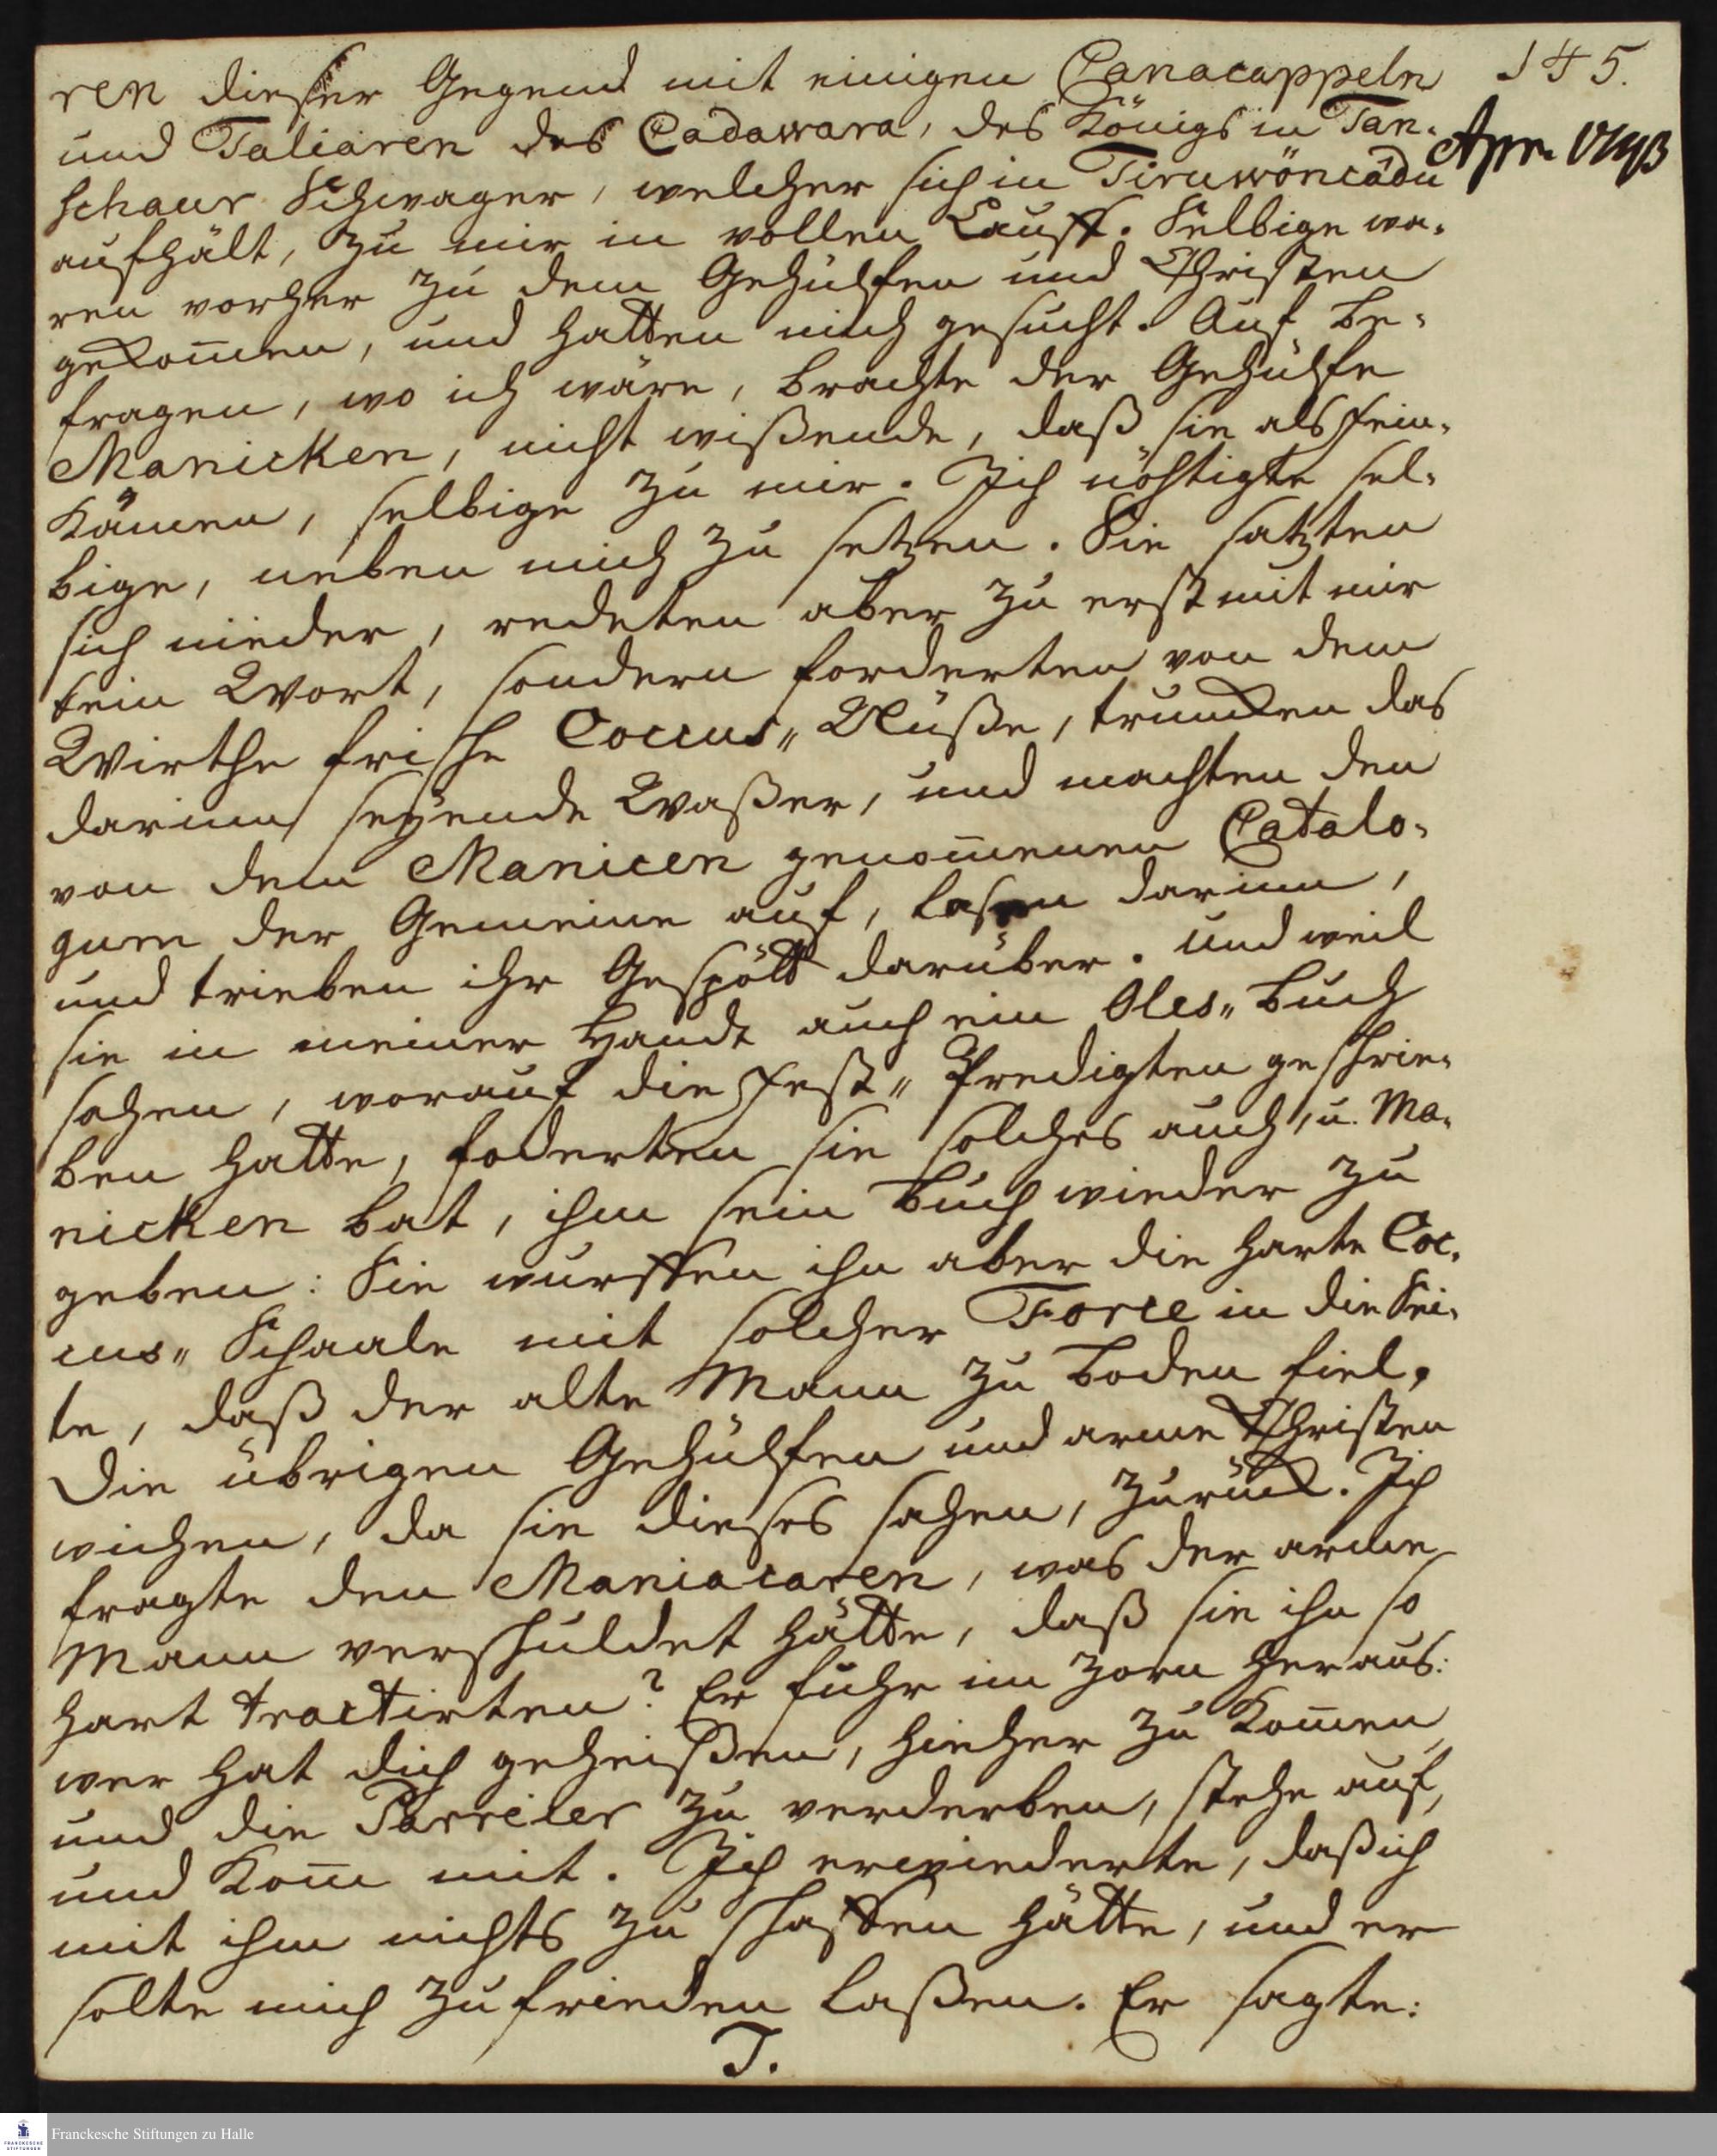 145.
Apr.
ren dieser Gegend mit einigen Canacappeln
und Taliaren des Cadawara, des Königs in Tan-
schaur Schwager, welcher sich in Tiruwöncádu
aufhält, zu mir in vollen Lauff. Selbige wa-
ren vorher zu dem Gehülfen und Christen
gekom̄en, und hatten mich gesucht. Auf Be-
fragen, wo ich wäre, brachte der Gehülfe
Manicken, nicht wißende, daß sie als Fein-
kämen, selbige zu mir. Ich nöthigte sel-
bige, neben mich zu setzen. Sie satzten
sich nieder, redeten aber zu erst mit mir
kein Wort, sondern forderten von dem
Wirthe frische Coccus„ Nüße, truncken das
darinn seyende Waßer, und machten den
von dem Manicen genom̄enen Catalo-
gum der Gemeine auf, lasen darinn,
und trieben ihr Gespött darüber. Und weil
sie in meiner Hand auch ein Oles„ Buch
sahen, worauf die Fest„ Predigten geschrie-
ben hatte, foderten sie solches auch, u. Ma-
nicken bat, ihm sein Buch wieder zu
geben: Sie wurffen ihn aber die harte Coc-
cus„ Schaale mit solcher Force in die Sei-
te, daß der alte Mann zu Boden fiel.
Die übrigen Gehülfen und arme Christen
wichen, da sie dieses sahen, zurück. Ich
fragte den Maniacaren, was der arme
Mann verschuldet hätte, daß sie ihn so
hart tractirten? Er fuhr im Zorn heraus:
wer hat dich geheißen, hieher zu kom̄en,
und die Parreier zu verderben, stehe auf,
und kom̄ mit. Ich erwiederte, daß ich
mit ihm nichts zu schaffen hätte, und er
solte mich zufrieden laßen. Er sagte:
T.
Franckesche Stiftungen zu Halle
FRANCKESCHE
STIFTUNGEN